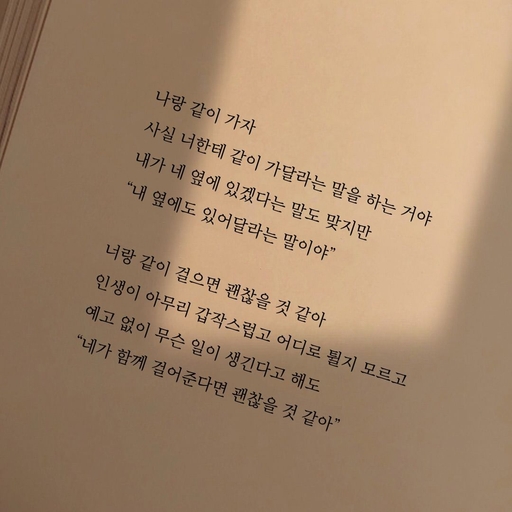 나랑 같이 가자
사실 너한테 같이 가달라는 말을 하는 거야
내가 네 옆에 있겠다는 말도 맞지만
“내 옆에도 있어달라는 말이야”
너랑 같이 걸으면 괜찮을 것 같아
인생이 아무리 갑작스럽고 어디로 튈지 모르고
예고 없이 무슨 일이 생긴다고 해도
“네가 함께 걸어준다면 괜찮을 것 같아”